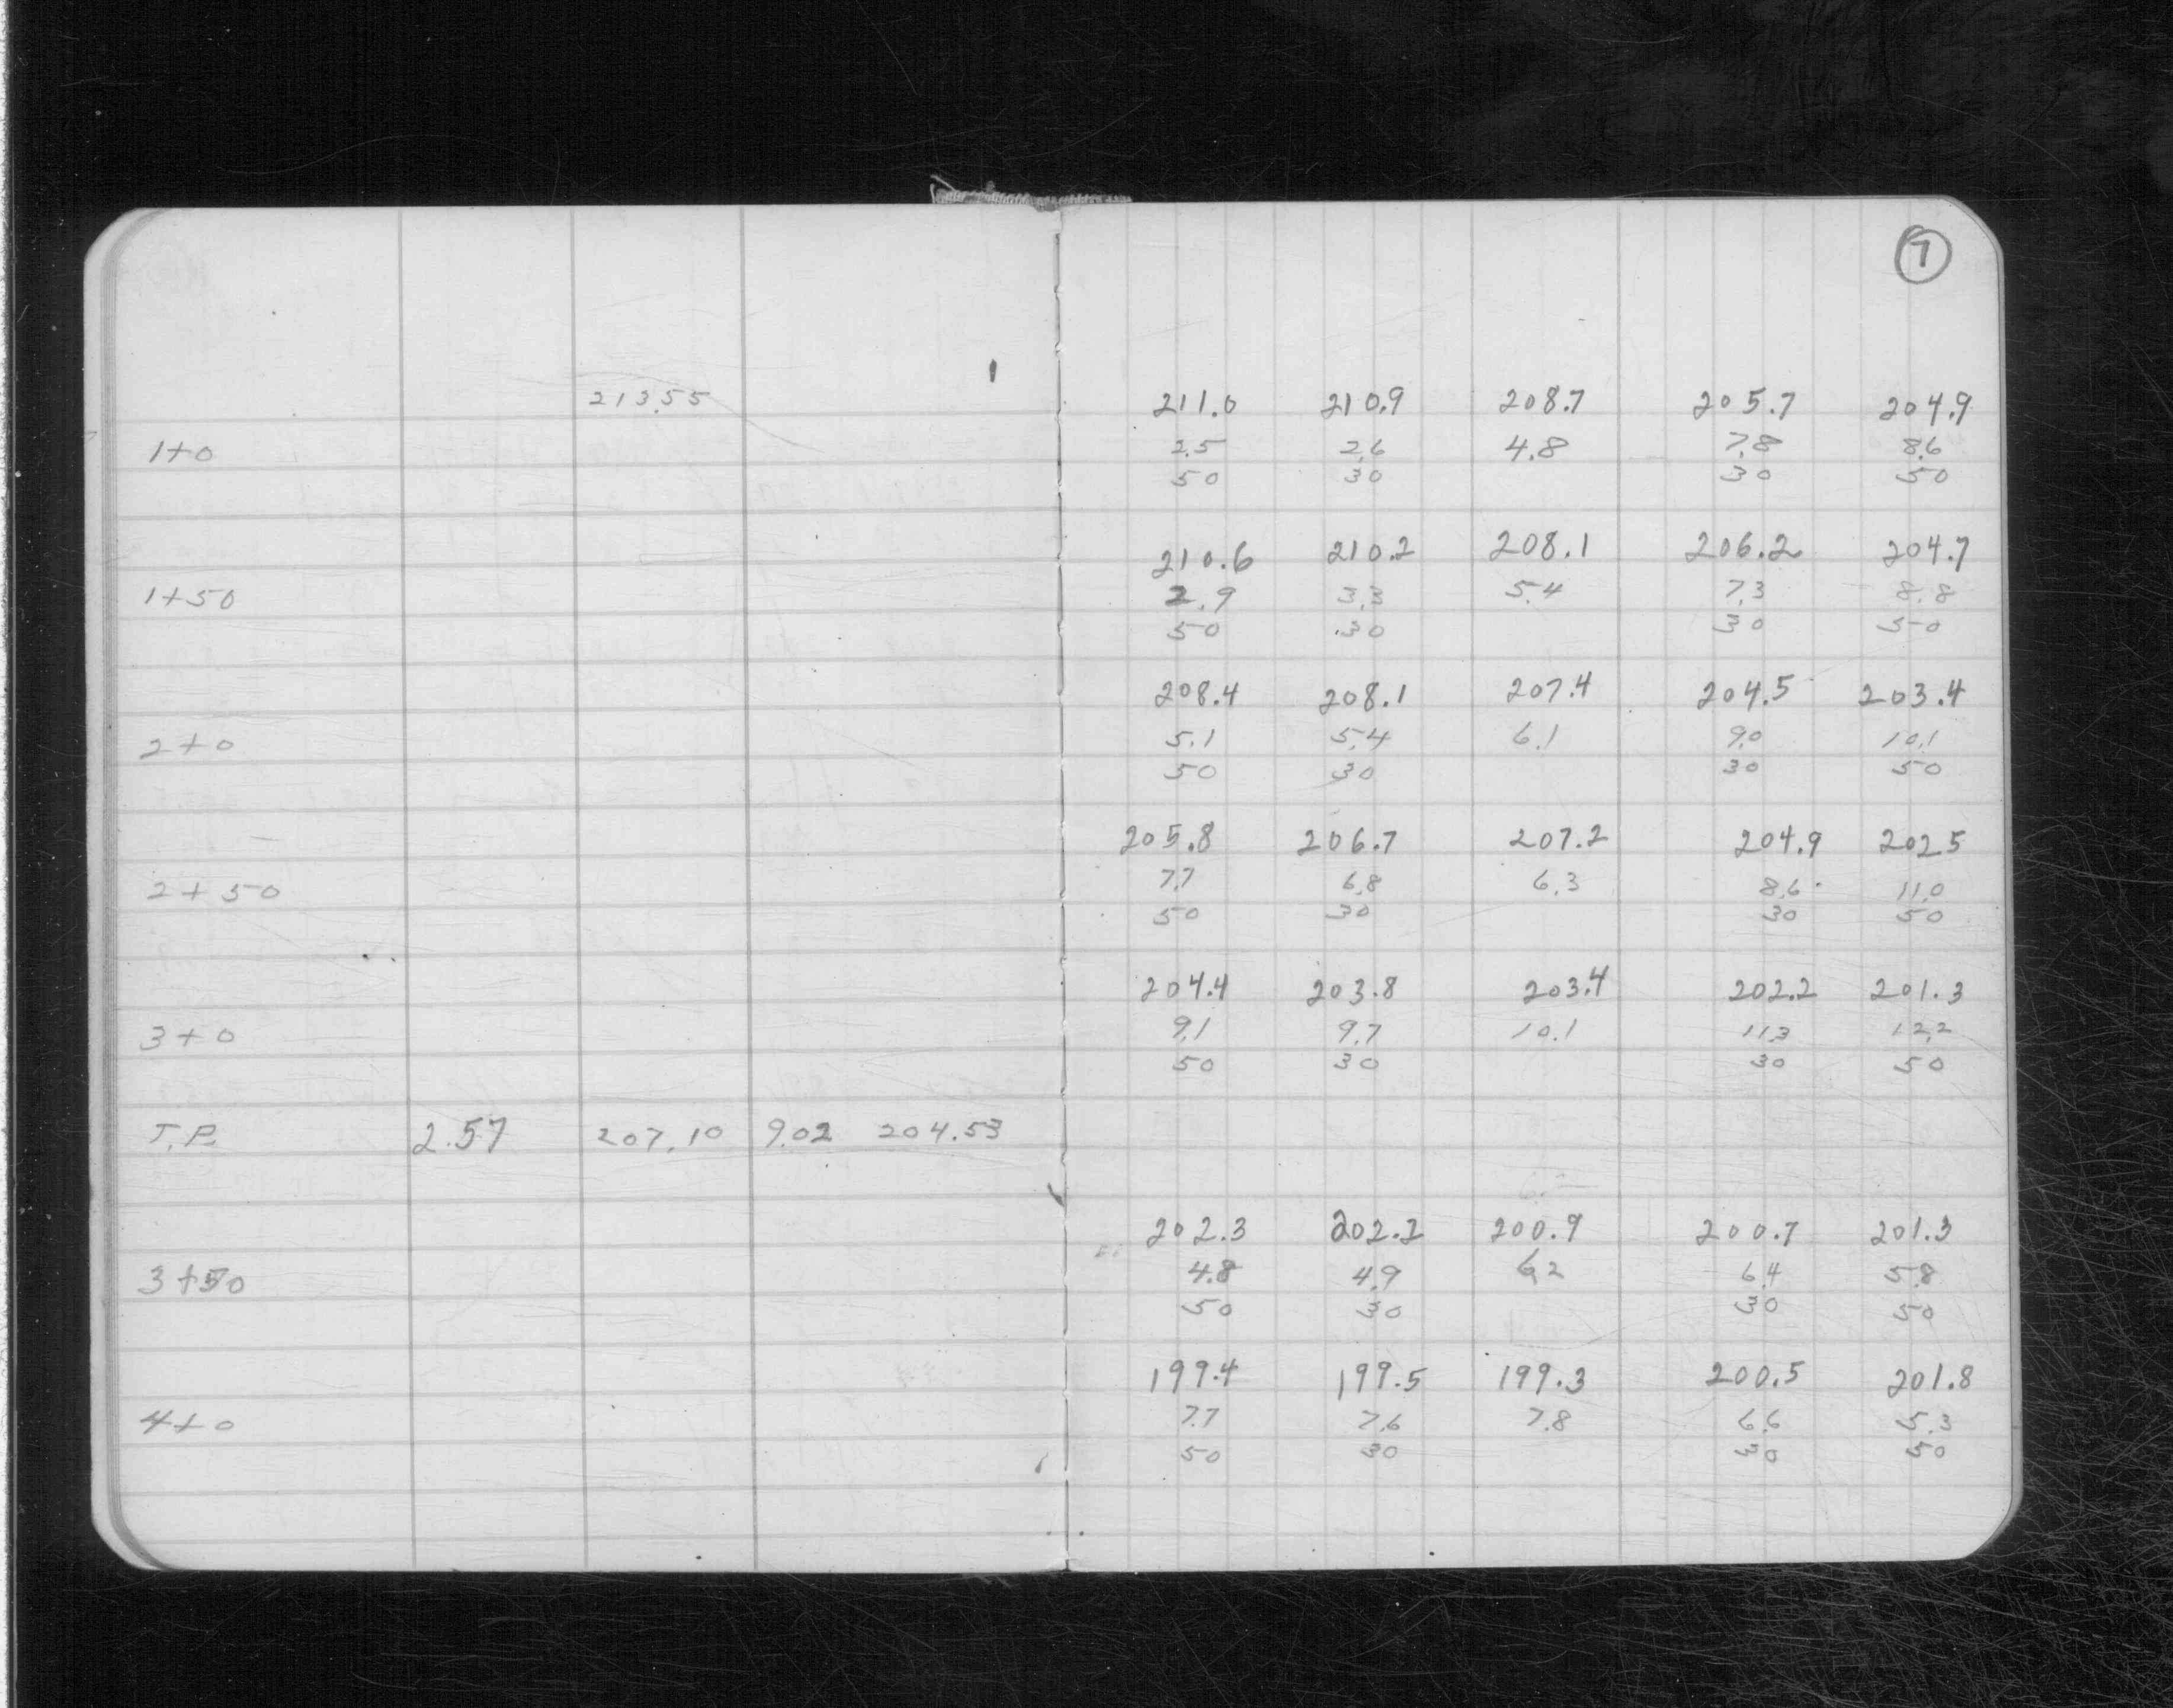 7
213.55 211.0 210.9 208.7 205.7 204.9
1+0 2.5 2.6 4.8 7.8 8.6
50 30 30 50
210.6 210.2 208.1 206.2 204.7
1+50 2.9 3.3 5.4 7.3 8.8
50 30 30 50
208.4 208.1 207.4 204.5 203.4
2+0 5.1 5.4 6.1 9.0 10.1
50 30 30 50
205.8 206.7 207.2 204.9 202.5
2+50 7.7 6.8 6.3 8.6 11.0
50 30 30 50
204.4 203.8 203.4 202.2 201.3
3+0 9.1 9.7 10.1 11.3 12.2
50 30 30 50
T.P. 2.57 207.10 9.02 204.53
202.3 202.2 200.9 200.7 201.3
3+50 4.8 4.9 6.2 6.4 5.8
50 30 30 50
199.4 199.5 199.3 200.5 201.8
4+0 7.7 7.6 7.8 6.6 5.3
50 30 30 50